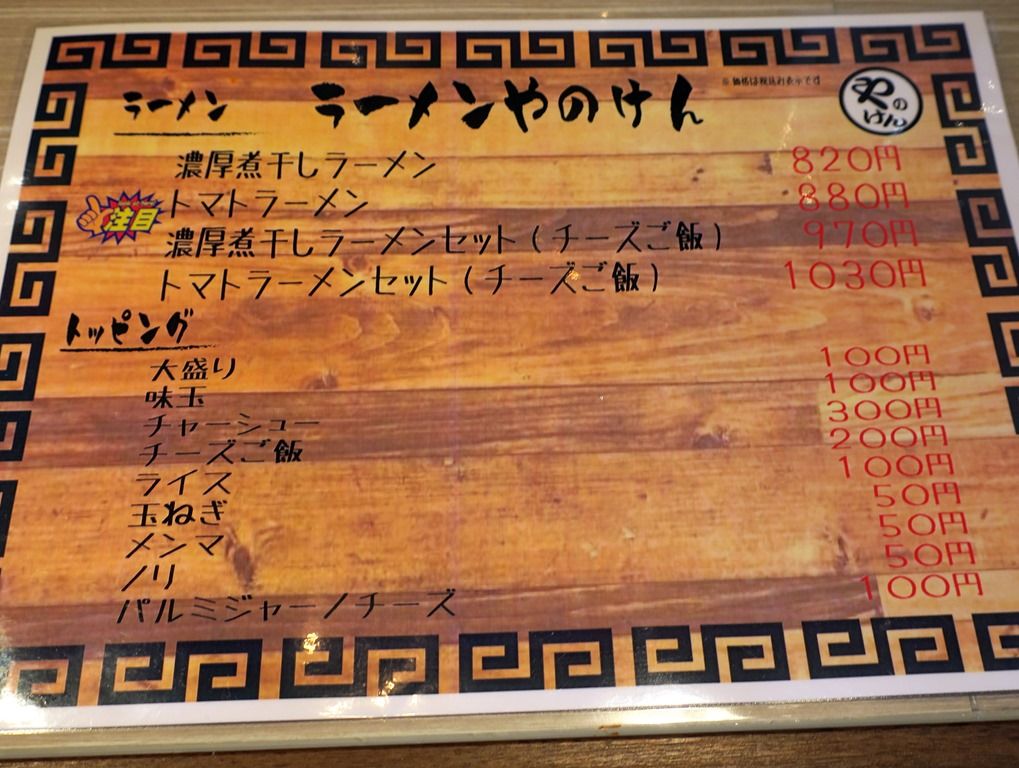 ※ 価格は税込み表示です
ラーメン ラーメンやのけん
やのけん
濃厚煮干しラーメン 820円
注目 トマトラーメン 880円
濃厚煮干しラーメンセット(チーズご飯) 970円
トマトラーメンセット(チーズご飯) 1030円
トッピング
大盛り 100円
味玉 100円
チャーシュー 300円
チーズご飯 200円
ライス 100円
玉ねぎ 50円
メンマ 50円
ノリ 50円
パルミジャーノチーズ 100円